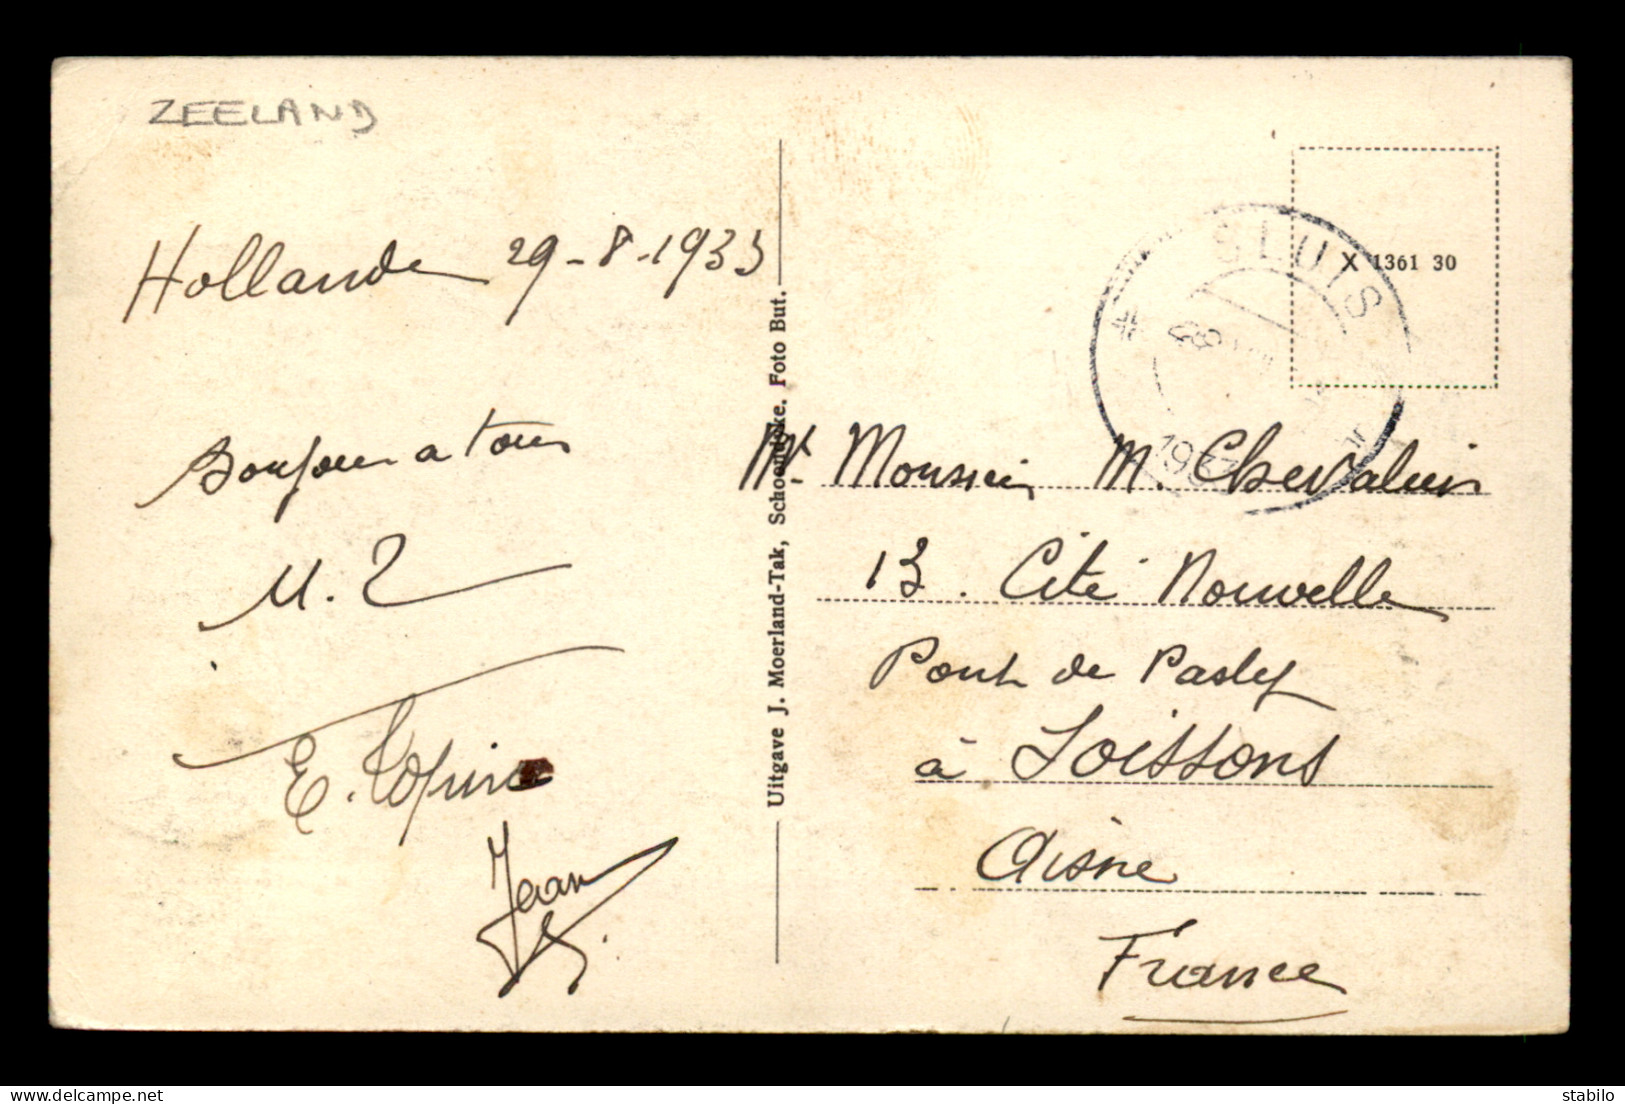 ZEELAND
Hollande 29-8-1933
Bonjour a tous
M. L
E. Lopin
Jean
Uitgave J. Moerland-Tak, Schoondijke. Foto But.
X 1361 30
SLUIS
28
1933
Mr. Monsieur M. Chevalier
13. Cité Nouvelle
Pont de Pasly
à Soissons
Aisne
France
delcampe.net
stabilo